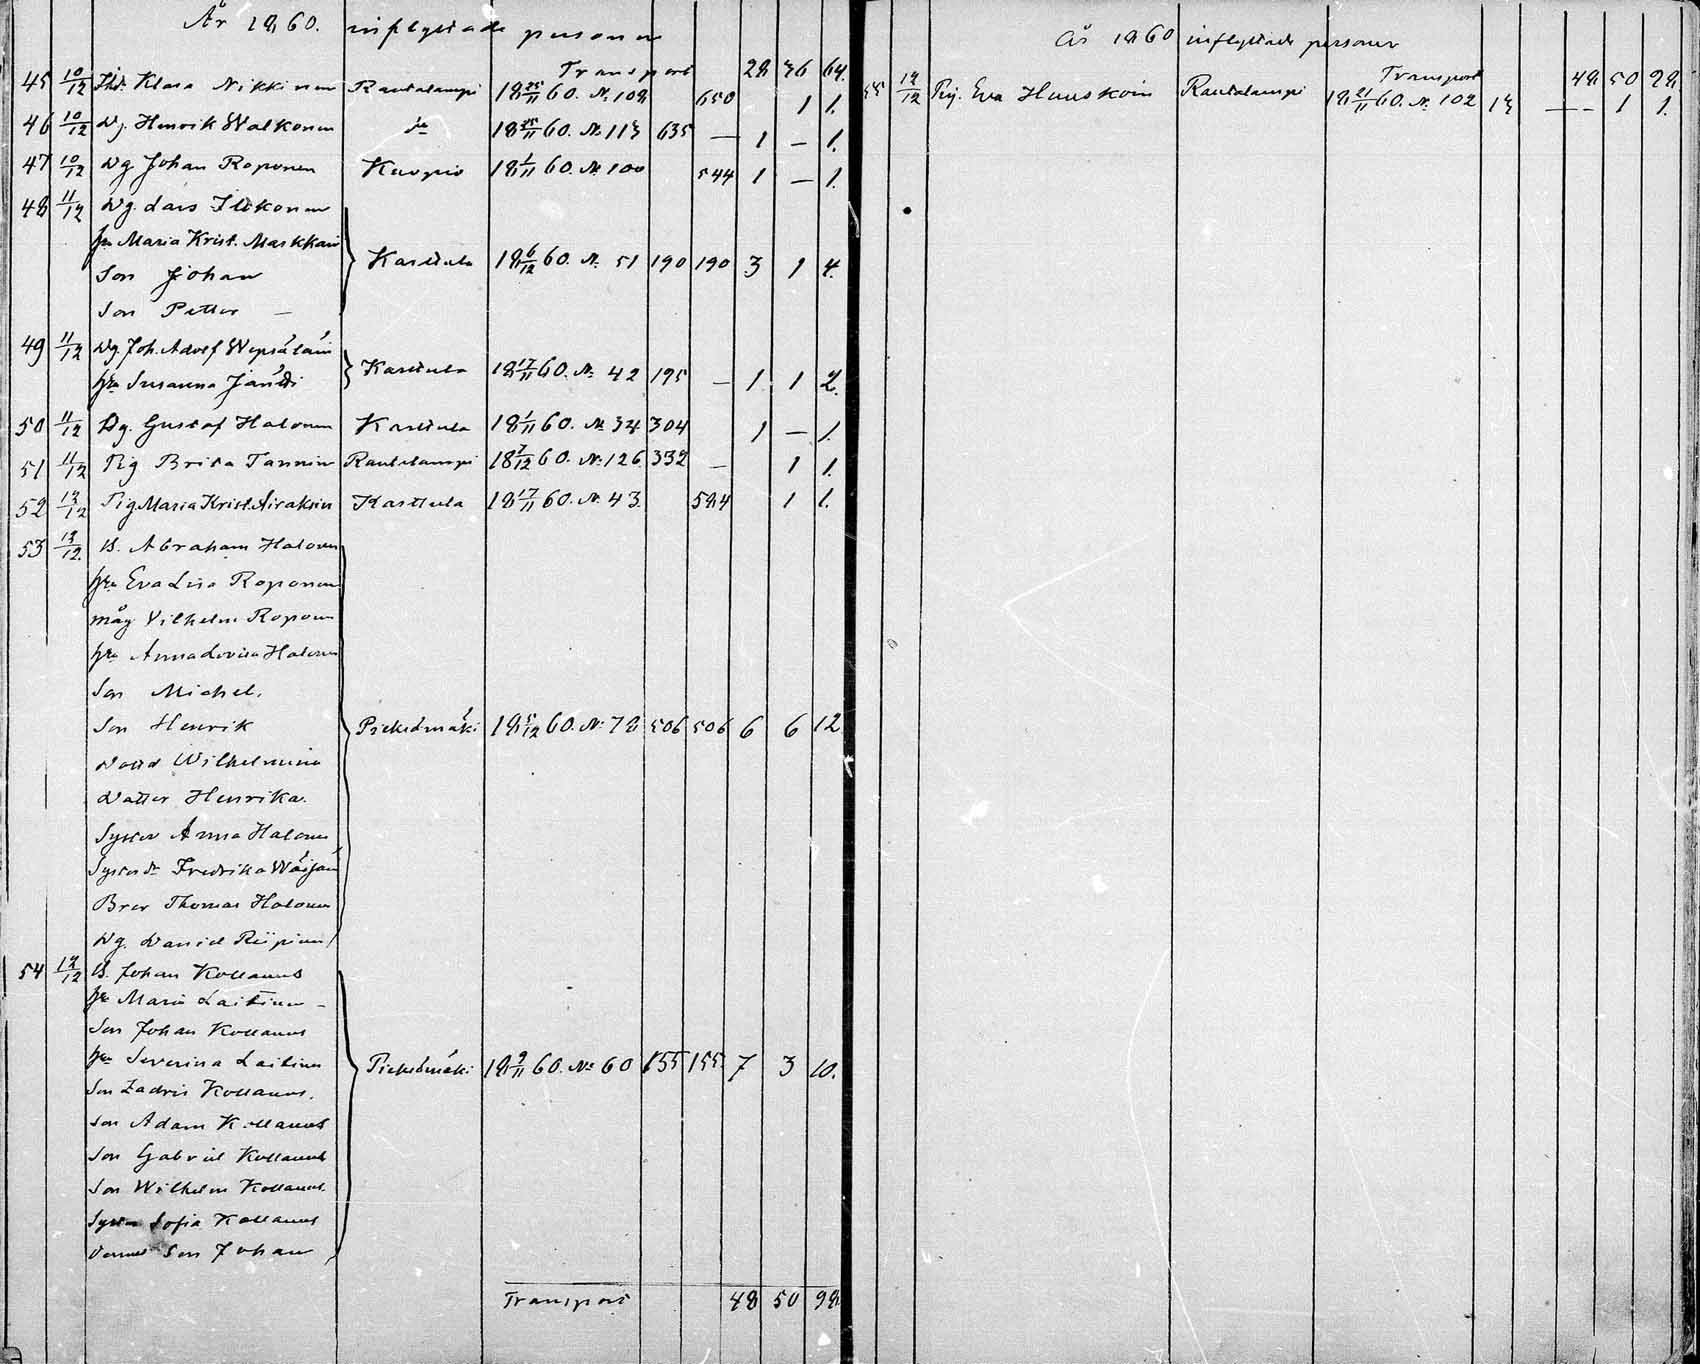 År 1860. inflyttade personer
Transport 28 36 64.
45 10/12 Klara Nikkinen Rautalampi 18 25/11 60. N. 108 650 1 1.
46 10/12 Dg. Henrik Walkonen do 18 25/11 60. No 113 635 — 1 — 1.
47 10/12 Dg Johan Roponen Kuopio 18 1/11 60. No 100 544 1 — 1.
48 11/12 Dg. Lars Ilkonen
hu Maria Krist. Markkain
Son Johan
Son Petter —
Karttula 18 6/12 60. N. 51 190 190 3 1 4.
49 11/12 Dg. Joh. Adolf Wepsäläin
hu Susanna Jäntti
Karttula 18 17/11 60. N. 42 195 — 1 1 2.
50 11/12 Dg. Gustaf Halonen Karttula 18 1/11 60. No 34 304 1 — 1.
51 11/12 Pig Brita Tannin Rautalampi 18 7/12 60. No. 126 332 — 1 1.
52 12/12 Pig. Maria Krist. Airaksin Karttula 18 17/11 60. N. 43. 584 1 1.
53 12/12. B. Abraham Halonen
hu Eva Lisa Roponen
måg Vilhelm Roponen
hu Anna Lovisa Halonen
Son Michel.
Son Henrik
Pieksämäki 18 5/12 60. No 78 506 506 6 6 12
Dottr Wilhelmina
Dotter Henrika.
Syster Anna Halonen
Syster dr Fredrika Wäisän
Bror Thomas Halonen
Dg. Daniel Riipinen
54 12/12 B. Johan Kollanus
hu Maria Laitinen —
Son Johan Kollanus
hu Severina Laitinen
Pieksämäki 18 9/11 60. No 60 155 155. 7 3 10.
Son Zadris Kollanus.
Son Adam Kollanus
Son Gabriel Kollanus
Son Wilhelm Kollanus.
Syster Sofia Kollanus
Dennes Son Johan
Transport 48 50 98
År 1860 inflyttade personer
Transport 48 50 98.
55 12/12 Pig. Eva Huuskoin Rautalampi 18 21/11 60. N. 102 13 — 1 1.